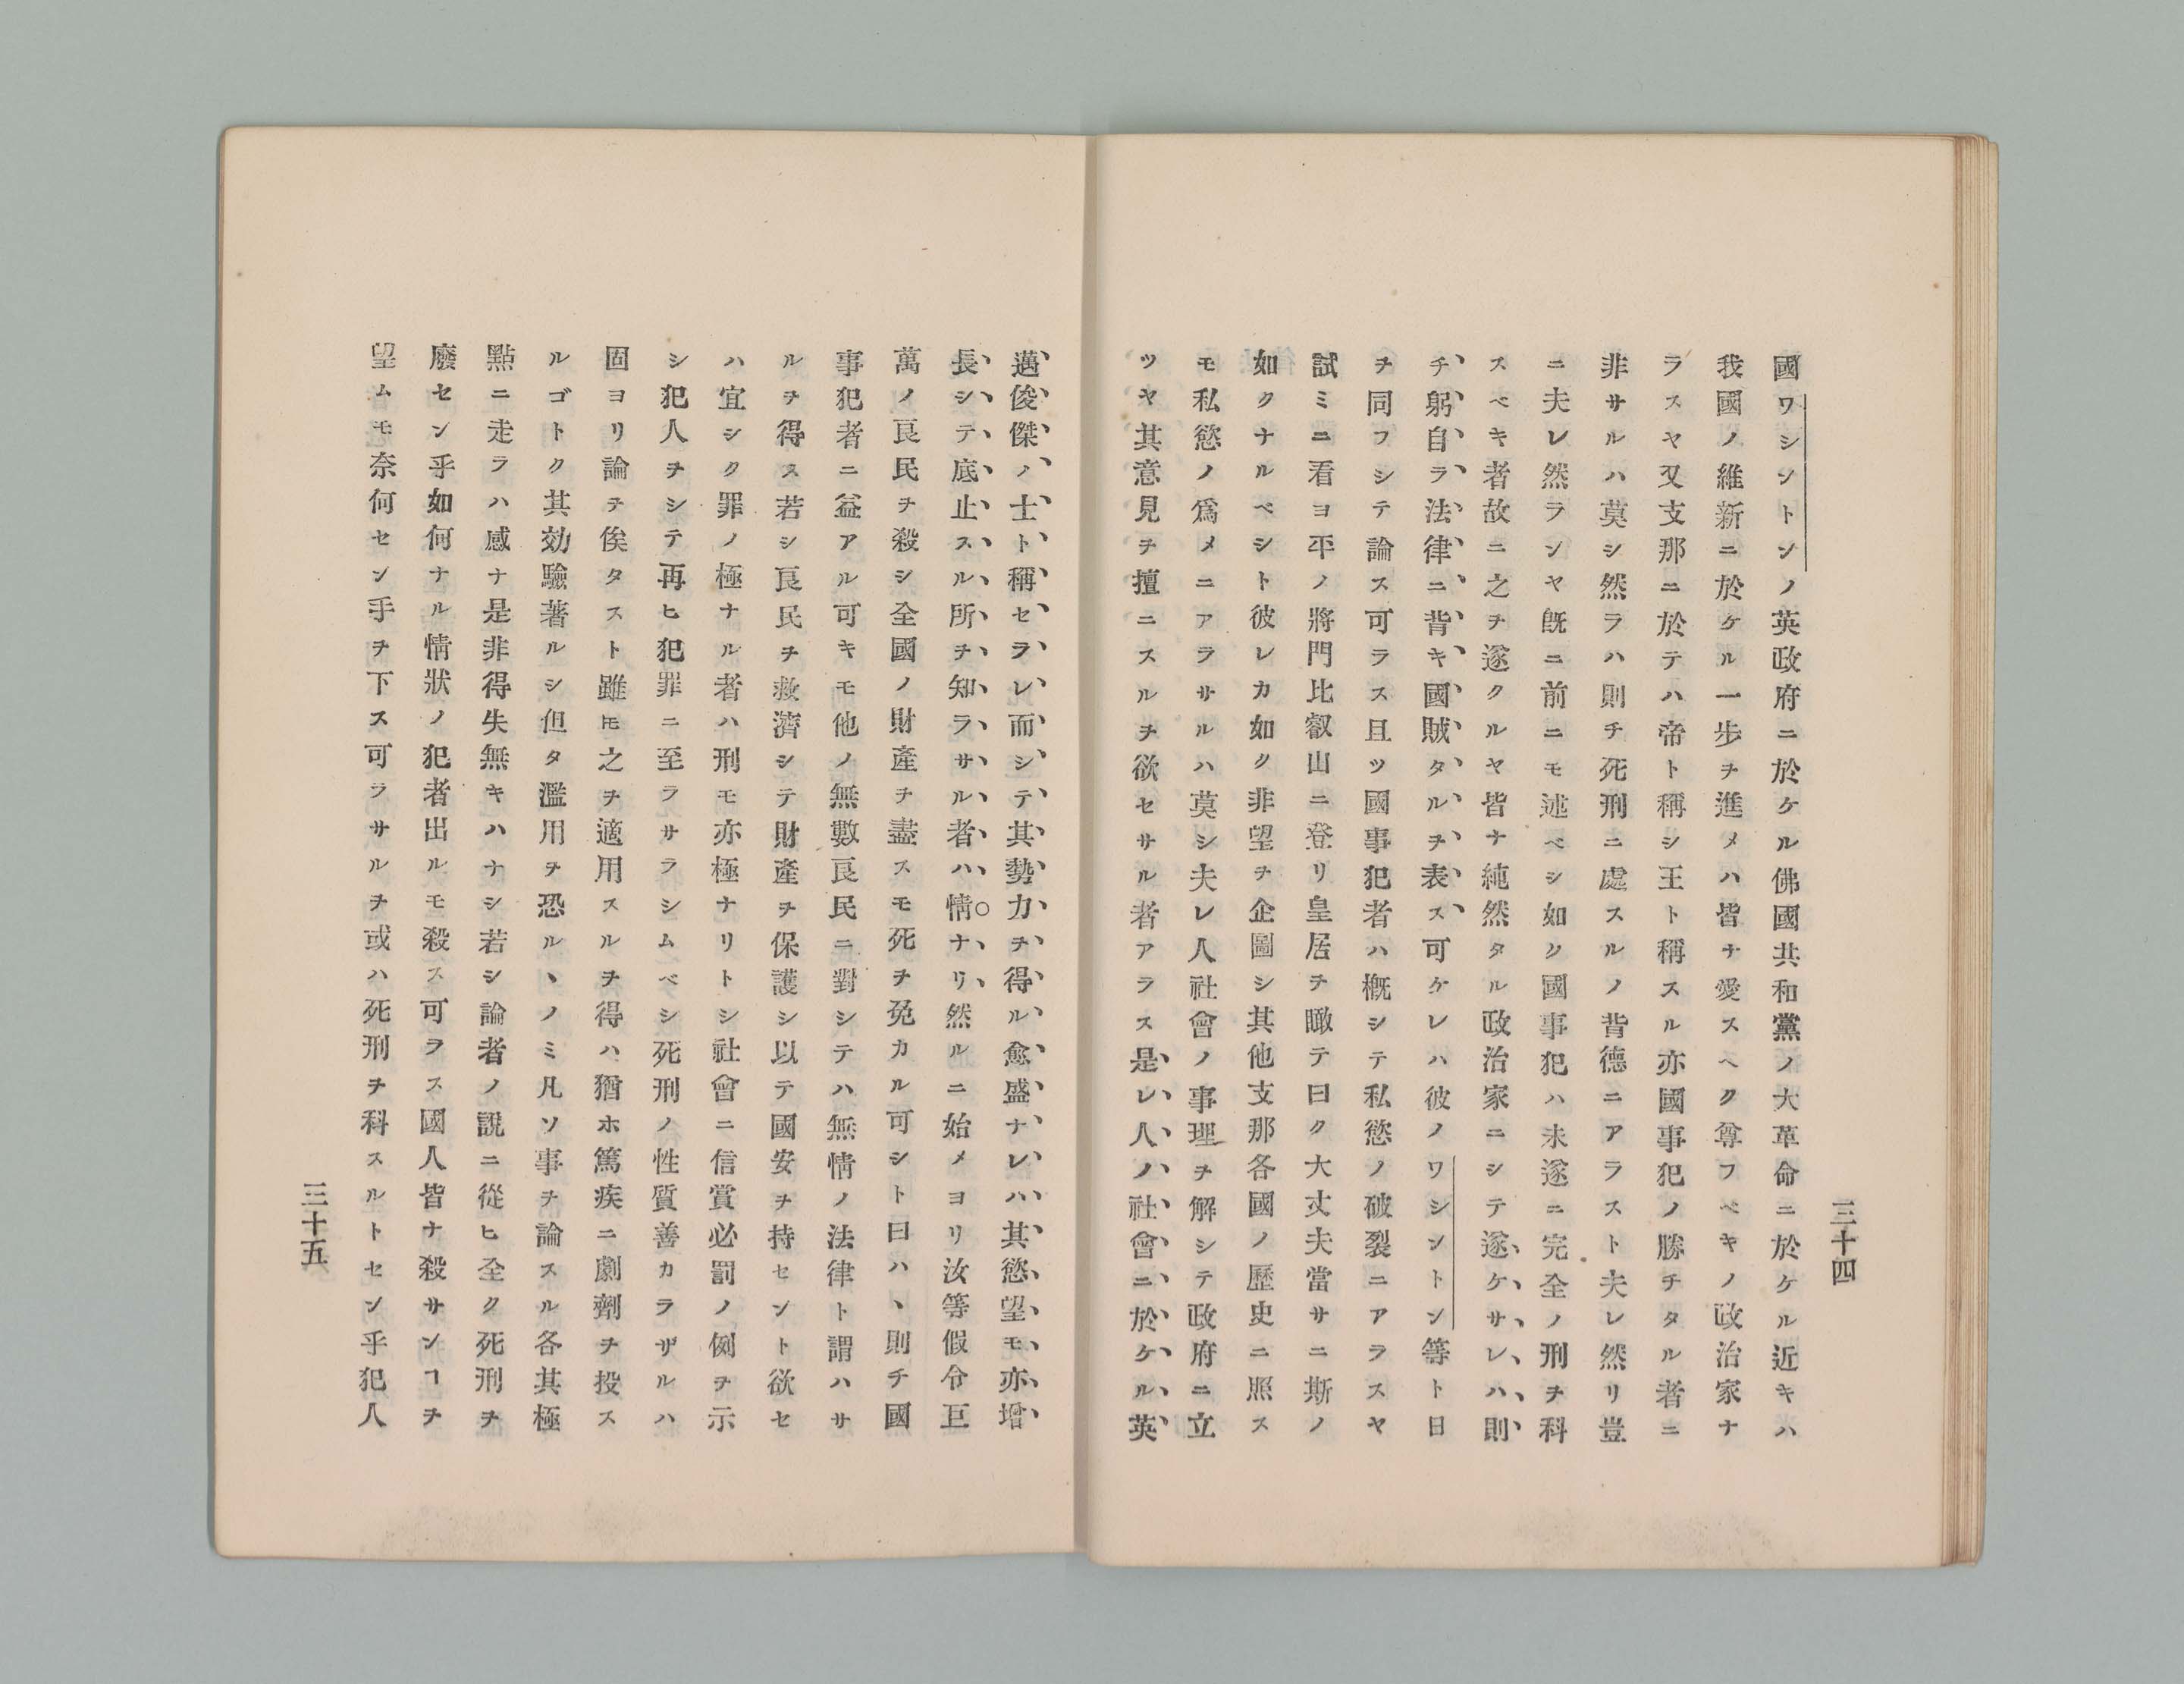 三十四
國ワシントンノ英政府ニ於ケル佛國共和黨ノ大革命ニ於ケル近キハ
我國ノ維新ニ於ケル一步ヲ進メハ皆ナ愛スヘク尊フベキノ政治家ナ
ラスヤ又支那ニ於テハ帝ト稱シ王ト稱スル亦國事犯ノ勝チタル者ニ
非サルハ莫シ然ラハ則チ死刑ニ處スルノ背德ニアラスト夫レ然リ豈
ニ夫レ然ランヤ旣ニ前ニモ述ベシ如ク國事犯ハ未遂ニ完全ノ刑ヲ科
スベキ者故ニ之ヲ遂クルヤ皆ナ純然タル政治家ニシテ遂ケサレハ則
チ躬自ラ法律ニ背キ國賊タルヲ表ス可ケレハ彼ノワシントン等ト日
ヲ同フシテ論ス可ラス且ツ國事犯者ハ槪シテ私慾ノ破裂ニアラスヤ
試ミニ看ヨ平ノ將門比叡山ニ登リ皇居ヲ瞰テ曰ク大丈夫當サニ斯ノ
如クナルベシト彼レカ如ク非望ヲ企圖シ其他支那各國ノ歷史ニ照ス
モ私慾ノ爲メニアラサルハ莫シ夫レ人社會ノ事理ヲ解シテ政府ニ立
ツヤ其意見ヲ擅ニスルヲ欲セサル者アラス是レ人ノ社會ニ於ケル英
邁俊傑ノ士ト稱セラレ而シテ其勢力ヲ得ル愈盛ナレハ其慾望モ亦增
長シテ底止スル所ヲ知ラサル者ハ情ナリ然ルニ始メヨリ汝等假令巨
萬ノ良民ヲ殺シ全國ノ財產ヲ盡スモ死ヲ免カル可シト曰ハヽ則チ國
事犯者ニ益アル可キモ他ノ無數良民ニ對シテハ無情ノ法律ト謂ハサ
ルヲ得ス若シ良民ヲ救濟シテ財產ヲ保護シ以テ國安ヲ持セント欲セ
ハ宜シク罪ノ極ナル者ハ刑モ亦極ナリトシ社會ニ信賞必罰ノ例ヲ示
シ犯人ヲシテ再ヒ犯罪ニ至ラサラシムベシ死刑ノ性質善カラザルハ
固ヨリ論ヲ俟タスト雖𪜈之ヲ適用スルヲ得ハ猶ホ篤疾ニ劇劑ヲ投ス
ルゴトク其効驗著ルシ但タ濫用ヲ恐ルヽノミ凡ソ事ヲ論スル各其極
點ニ走ラハ慼ナ是非得失無キハナシ若シ論者ノ說ニ從ヒ全ク死刑ヲ
廢セン乎如何ナル情狀ノ犯者出ルモ殺ス可ラス國人皆ナ殺サンヿヲ
望ムモ奈何セン手ヲ下ス可ラサルヲ或ハ死刑ヲ科スルトセン乎犯人
三十五